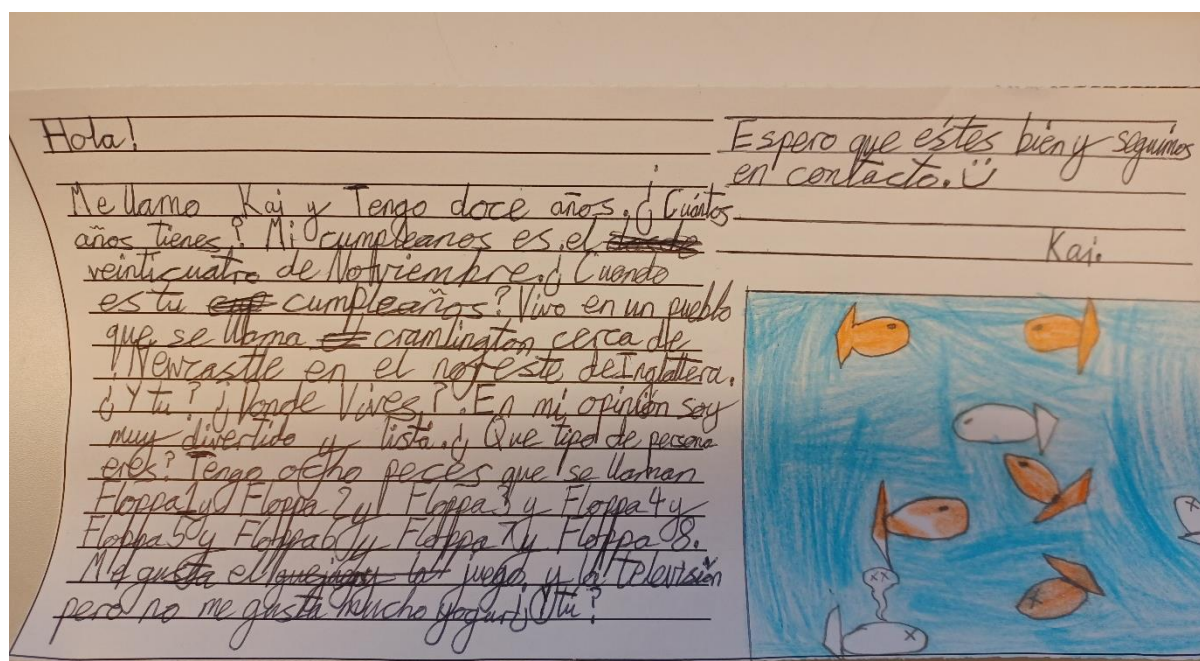 Hola!
Me llamo Kai y Tengo doce años. ¿Cuántos
años tienes? Mi cumpleanos es el
veinticuatro de Noviembre. ¿Cuando
es tu cumpleaños? Vivo en un pueblo
que se llama cramlington cerca de
Newcastle en el noreste de Inglaterra.
¿Y tu? ¿Donde Vives? En mi opinión soy
muy divertido y listá. ¿Que tipo de persona
eres? Tengo ocho peces que se llaman
Floppa1 y Floppa2 y Floppa3 y Floppa4 y
Floppa5 y Floppa6 y Floppa7 y Floppa8.
Me gusta el juego y la televisión
pero no me gusta mucho yogur¿Ytu?
Espero que éstes bien y seguimos
en contacto.
Kai.